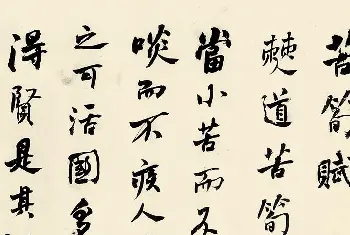 苦筍賦
僰道苦筍
當小苦而
啖而不疾人
之可活國多
得賢是其